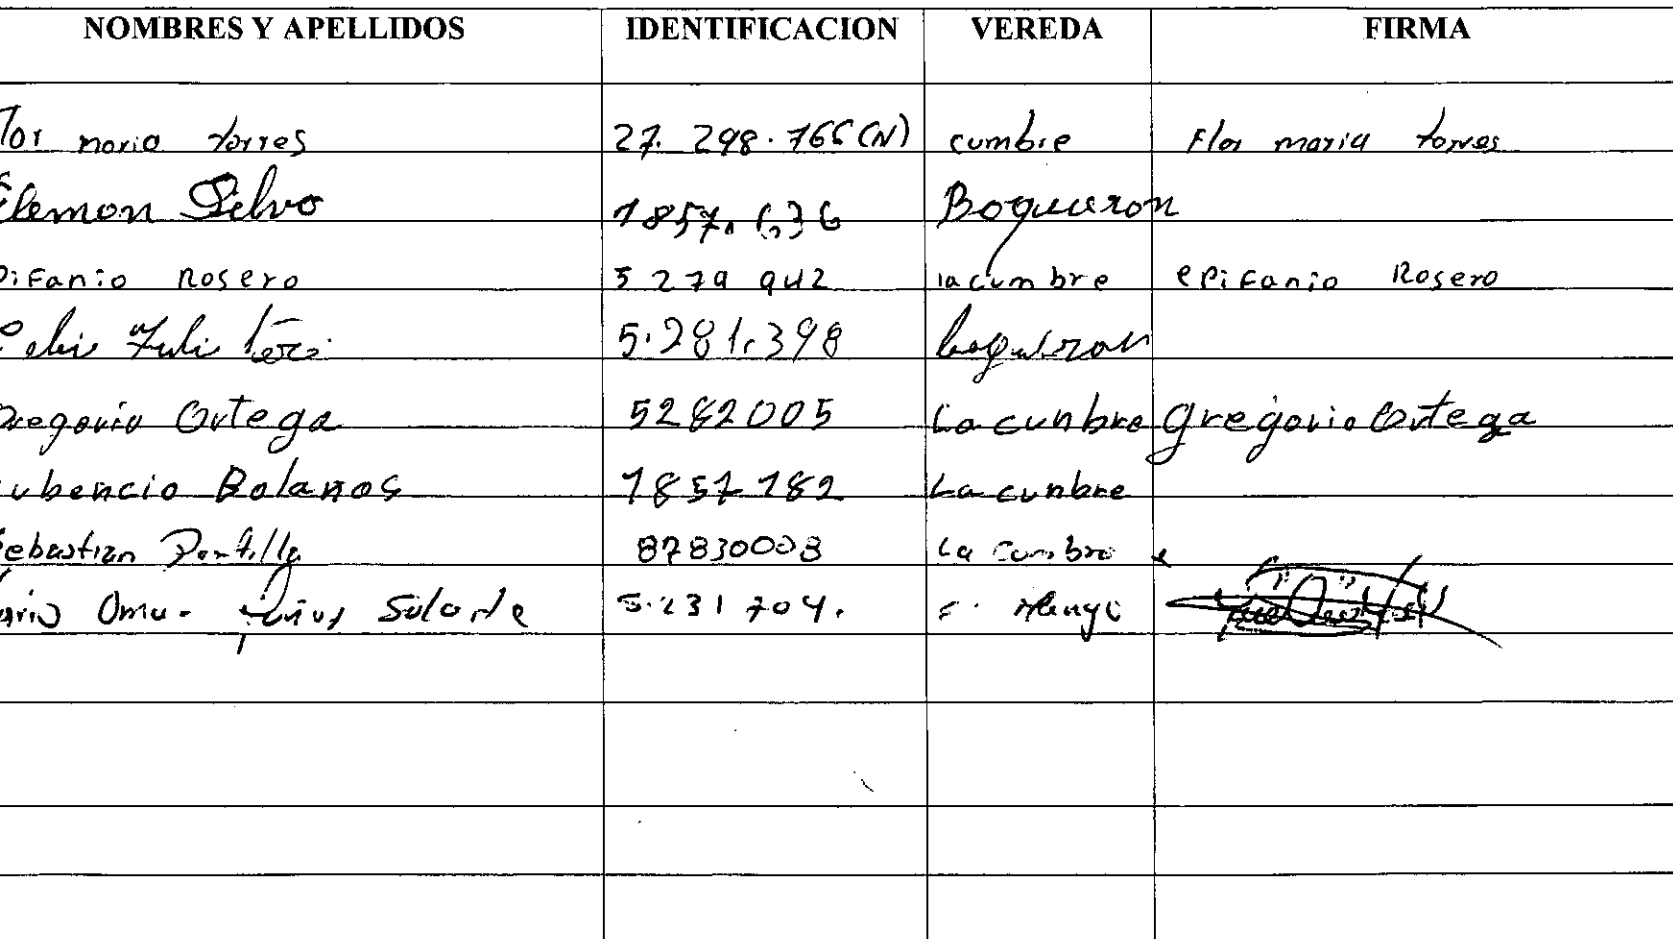 NOMBRES Y APELLIDOS IDENTIFICACION VEREDA FIRMA
lor maria torres 27.298.766 (N) cumbre Flor maria torres
Elemon Selvo 1857.636 Boqueron
pifanio Rosero 5 279 942 la cumbre epifanio Rosero
5.281.398 boqueron
regorio Ortega 5282005 La cunbre gregorio Ortega
ubencio Bolanos 1857182 La cunbre
ebastian Portilla 87830008 La cumbre
ario Omar Solarte 5.231704.